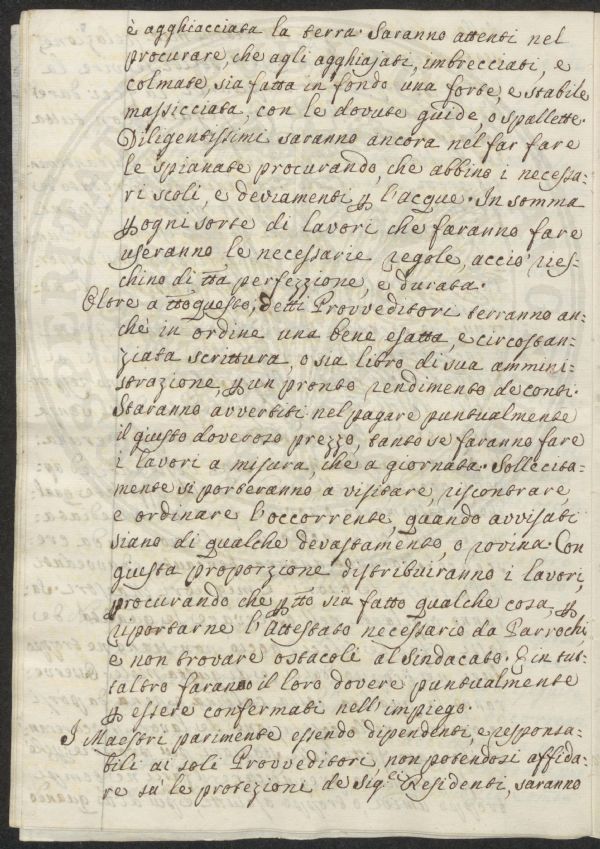 è agghiacciata la terra. Saranno attenti nel
procurare, che agli agghiajati, imbrecciati, e
colmate, sia fatta in fondo una forte, e stabile
massicciata, con le dovute guide, o spallette.
Diligentissimi saranno ancora nel far fare
le spianate procurando, che abbino i necessa-
ri scoli, e deviamenti p l'acque. In somma
p ogni sorte di lavori che faranno fare
useranno le necessarie regole, acciò ries-
chino di tta perfezzione, e durata.
Oltre a tto questo, detti Provveditori terranno an-
che in ordine una bene esatta, e circostan-
ziata scrittura, o sia libro di sua ammini-
strazione, p un pronto rendimento de conti.
Staranno avvertiti nel pagare puntualmente
il giusto doveroso prezzo, tanto se faranno fare
i lavori a misura, che a giornata. Sollecita-
mente si porteranno a visitare, riscontrare,
e ordinare l'occorrente, quando avvisati
siano di qualche devastamento, o rovina. Con
giusta proporzione distribuiranno i lavori,
procurando che p tto sia fatto qualche cosa, p
riportarne l'Attestato necessario da Parrochi
e non trovare ostacoli al Sindacato. E in tut-
taltro faranno il loro dovere puntualmente
p essere confermati nell'impiego.
I Maestri parimente essendo dipendenti, e responsa-
bili ai soli Provveditori non potendosi affida-
re su le protezioni de Sig.ci Residenti, saranno